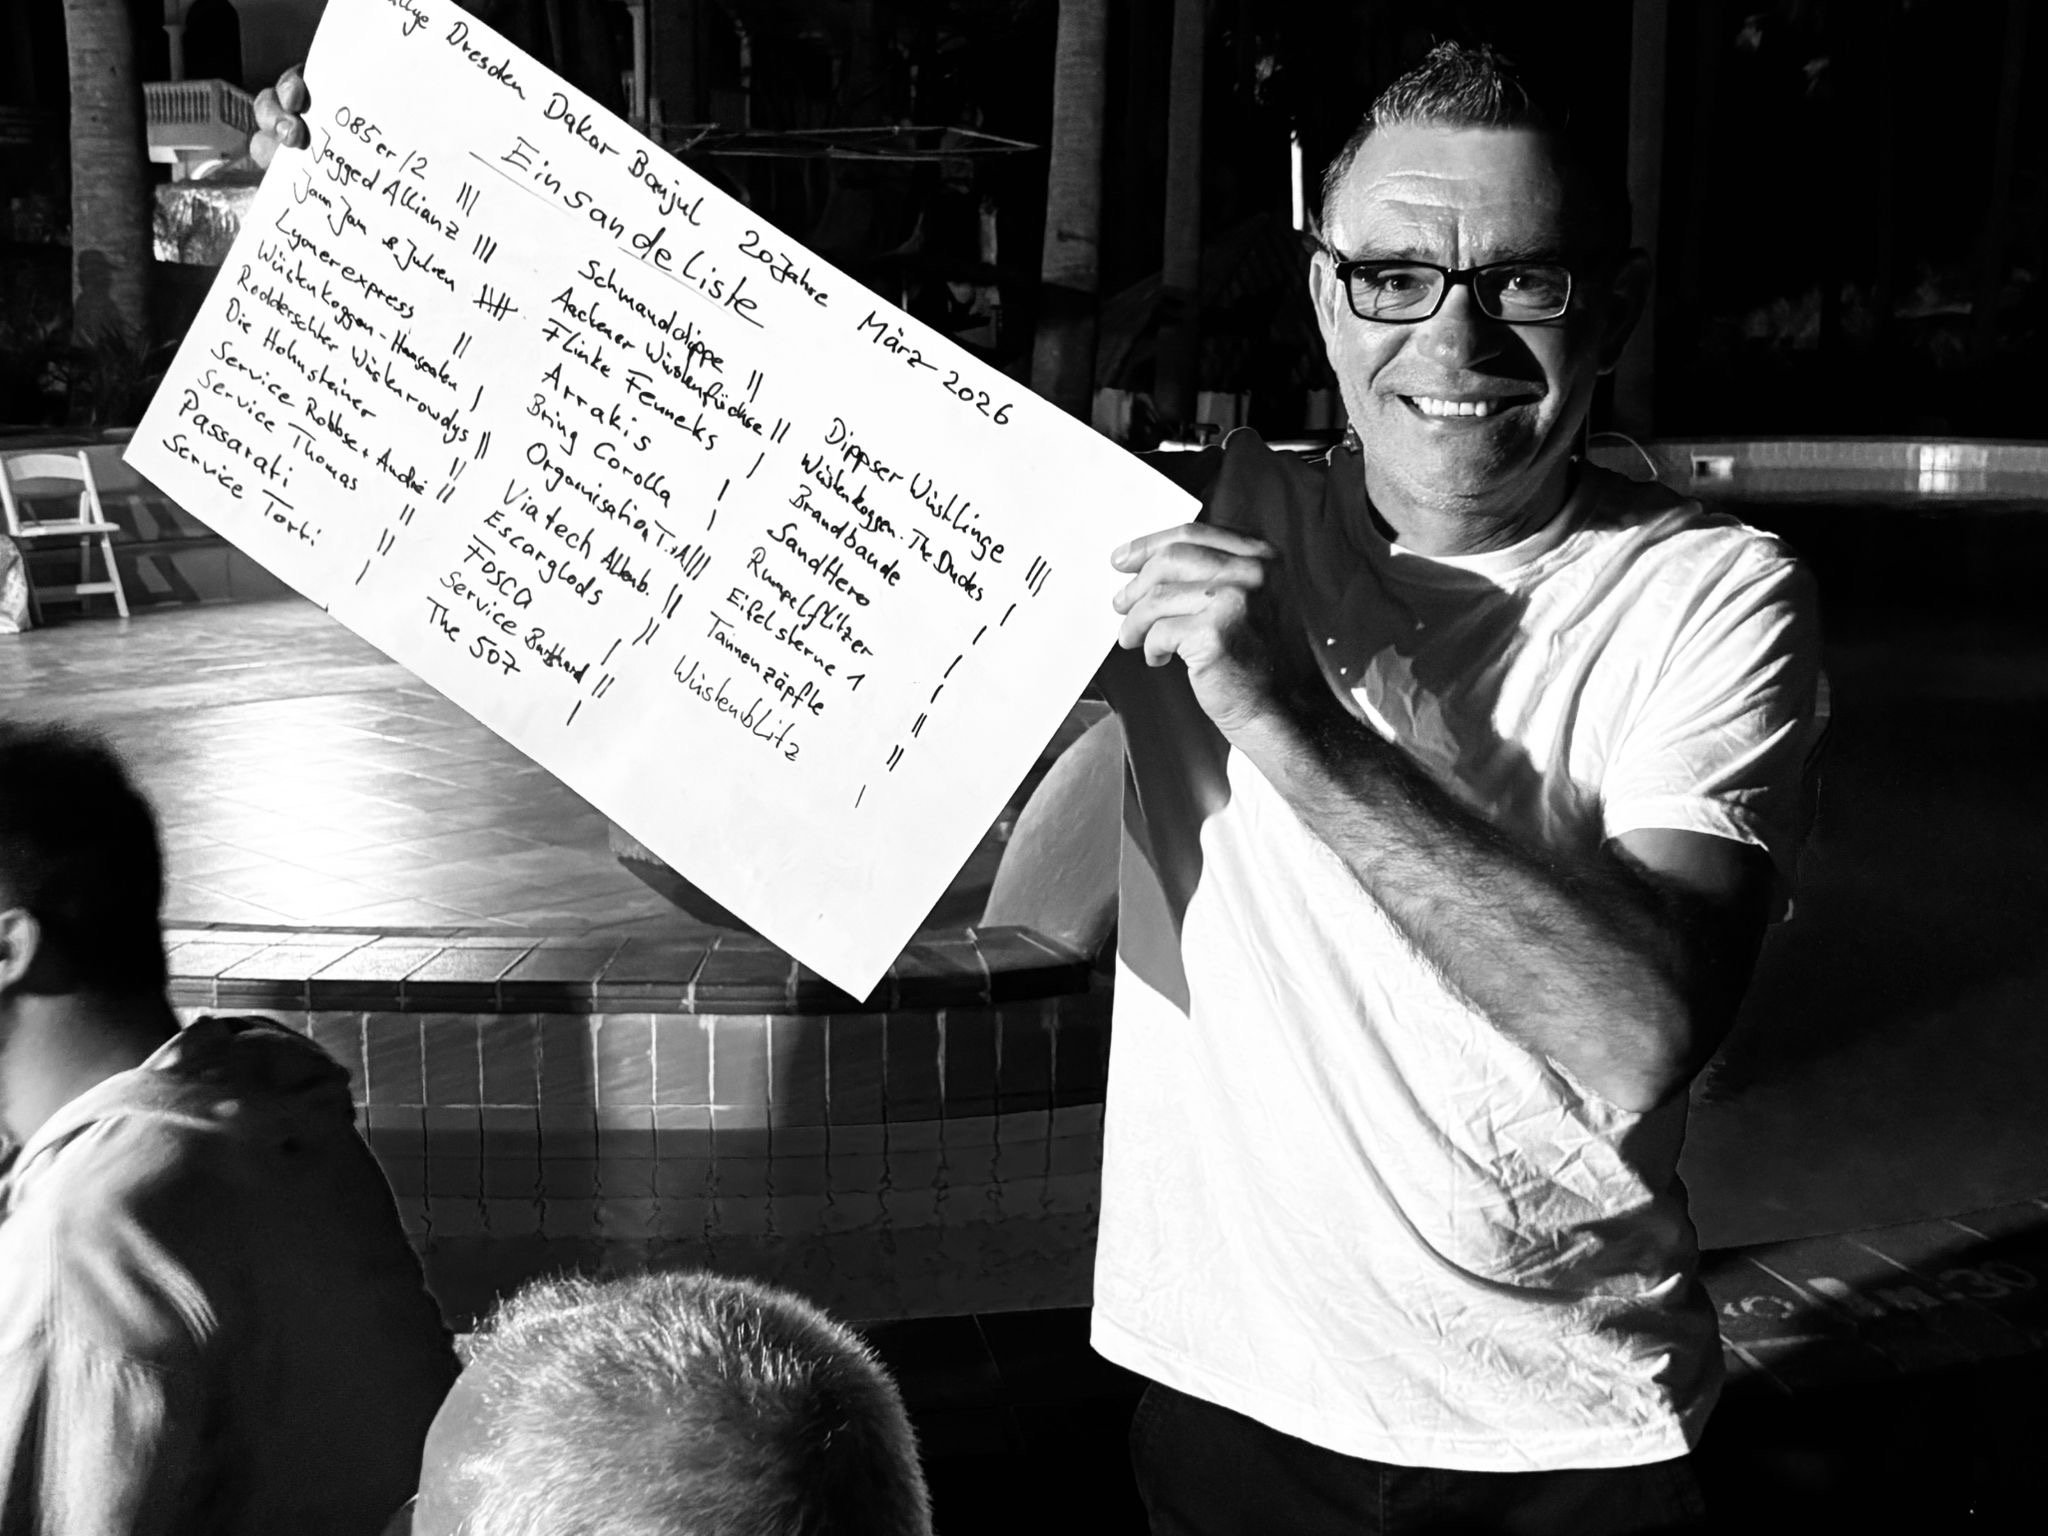 Rallye Dresden Dakar Banjul 20 Jahre März 2026
Einsandeliste
085er/2 |||
Jagged Allianz |||
Jaun Jam & Julien ||||
Lyonerexpress ||
Wüstenkoggen - Hanseaten |
Rodderschter Wüstenrowdys ||
Die Hohnsteiner ||
Service Robbse + André ||
Service Thomas ||
Passarati ||
Service Torti |
Schmanddippe ||
Aachener Wüstenfüchse ||
Flinke Fenneks |
Arrakis |
Bring Corolla |
Organisation T.+A ||||
Viatech Altenb. ||
Escarglods ||
FOSCA |
Service Burkhard ||
The 507 |
Dippser Wüstlinge ||||
Wüstenkoggen. The Dudes |
Brandbaude |
SandHero |
Rumpelflitzer |
Eifelsterne 1 ||
Tannenzäpfle ||
Wüstenblitz |
1M.30